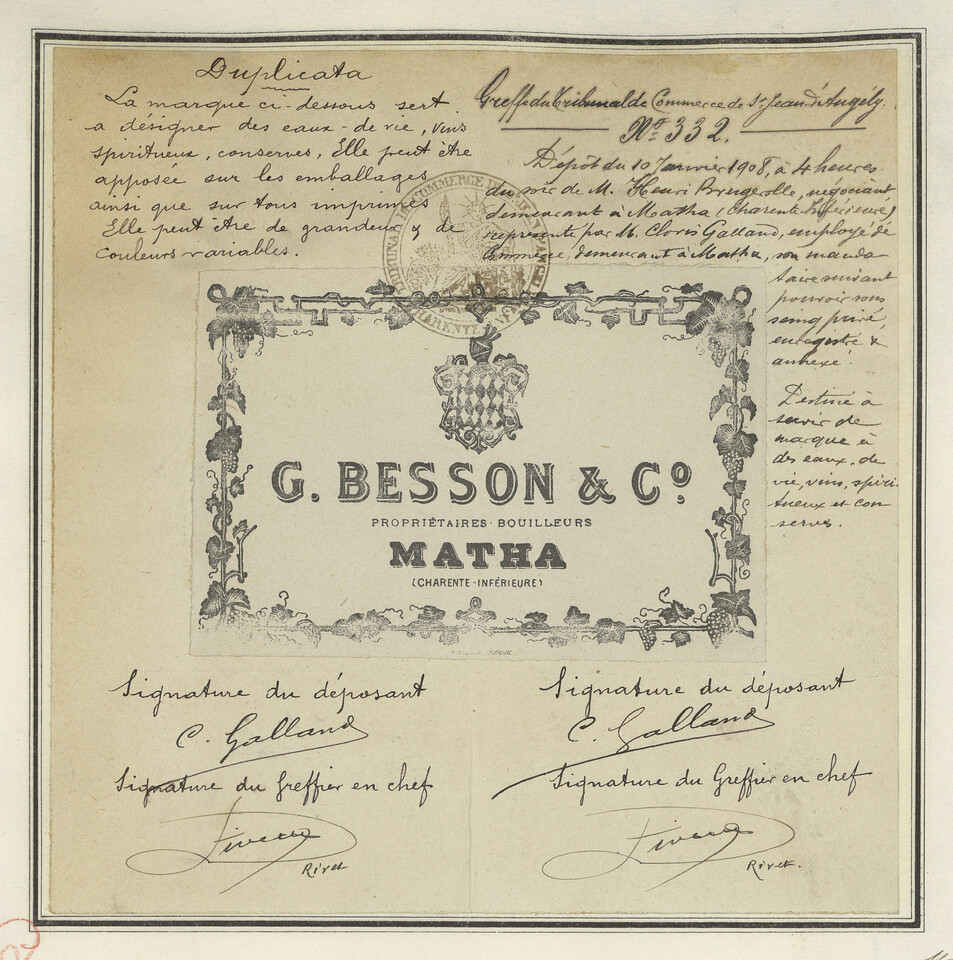 Duplicata
La marque ci-dessous sert
a désigner des eaux-de vie, vins
spiritueux, conserves, Elle peut être
apposée sur les emballages
ainsi que sur tous imprimés
Elle peut être de grandeur & de
Couleurs variables.
Greffe du Tribunal de Commerce de St Jean d'Angély.
No 332.
Dépôt du 10 Janvier 1908, à 4 heures
du soir de M. Henri Brugerolle, négociant
demeurant à Matha (Charente Inférieure)
représenté par M. Clovis Galland, employé de
Commerce, demeurant à Matha, son manda
taire suivant
pouvoir sous
seing privé,
enregistré &
annexé.
Destiné à
servir de
marque à
des eaux-de
vie, vins, spiri-
tueux et con
serves.
G. BESSON & Co
PROPRIÉTAIRES-BOUILLEURS
MATHA
(CHARENTE-INFÉRIEURE)
Signature du déposant
C. Galland
Signature du Greffier en chef
Rivet
Signature du déposant
C. Galland
Signature du Greffier en chef
Rivet.